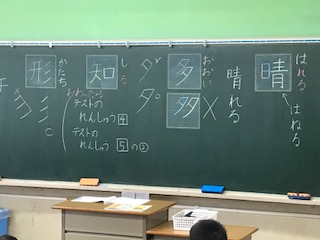 はれる
晴
はねる
晴れる
おおい
多
多
タ
タ
しる
知
おわったら
テストの
れんしゅう 4
テストの
れんしゅう 5の②
かたち
形
彡